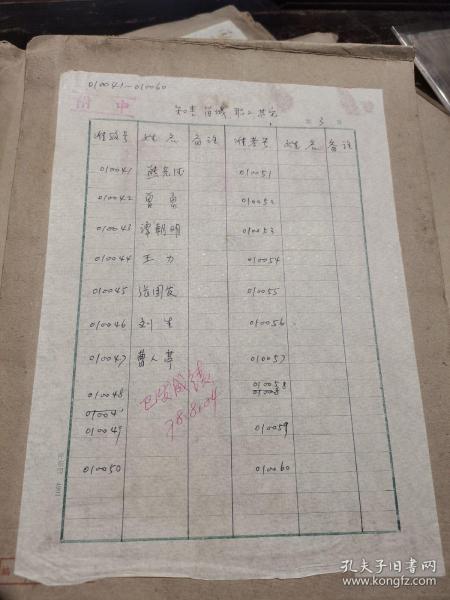 010041-010060
附 中
知青 留城 职工 其它
第 3 页
准考号 姓名 备注 准考号 姓名 备注
010041 010051
010042 曾勇 010052
010043 谭朝明 010053
010044 王力 010054
010045 张国发 010055
010046 刘生 010056
010047 曹人 010057
010048 010058
010049 010059
010050 010060
已发成绩
78.8.04
孔夫子旧书网
www.kongfz.com